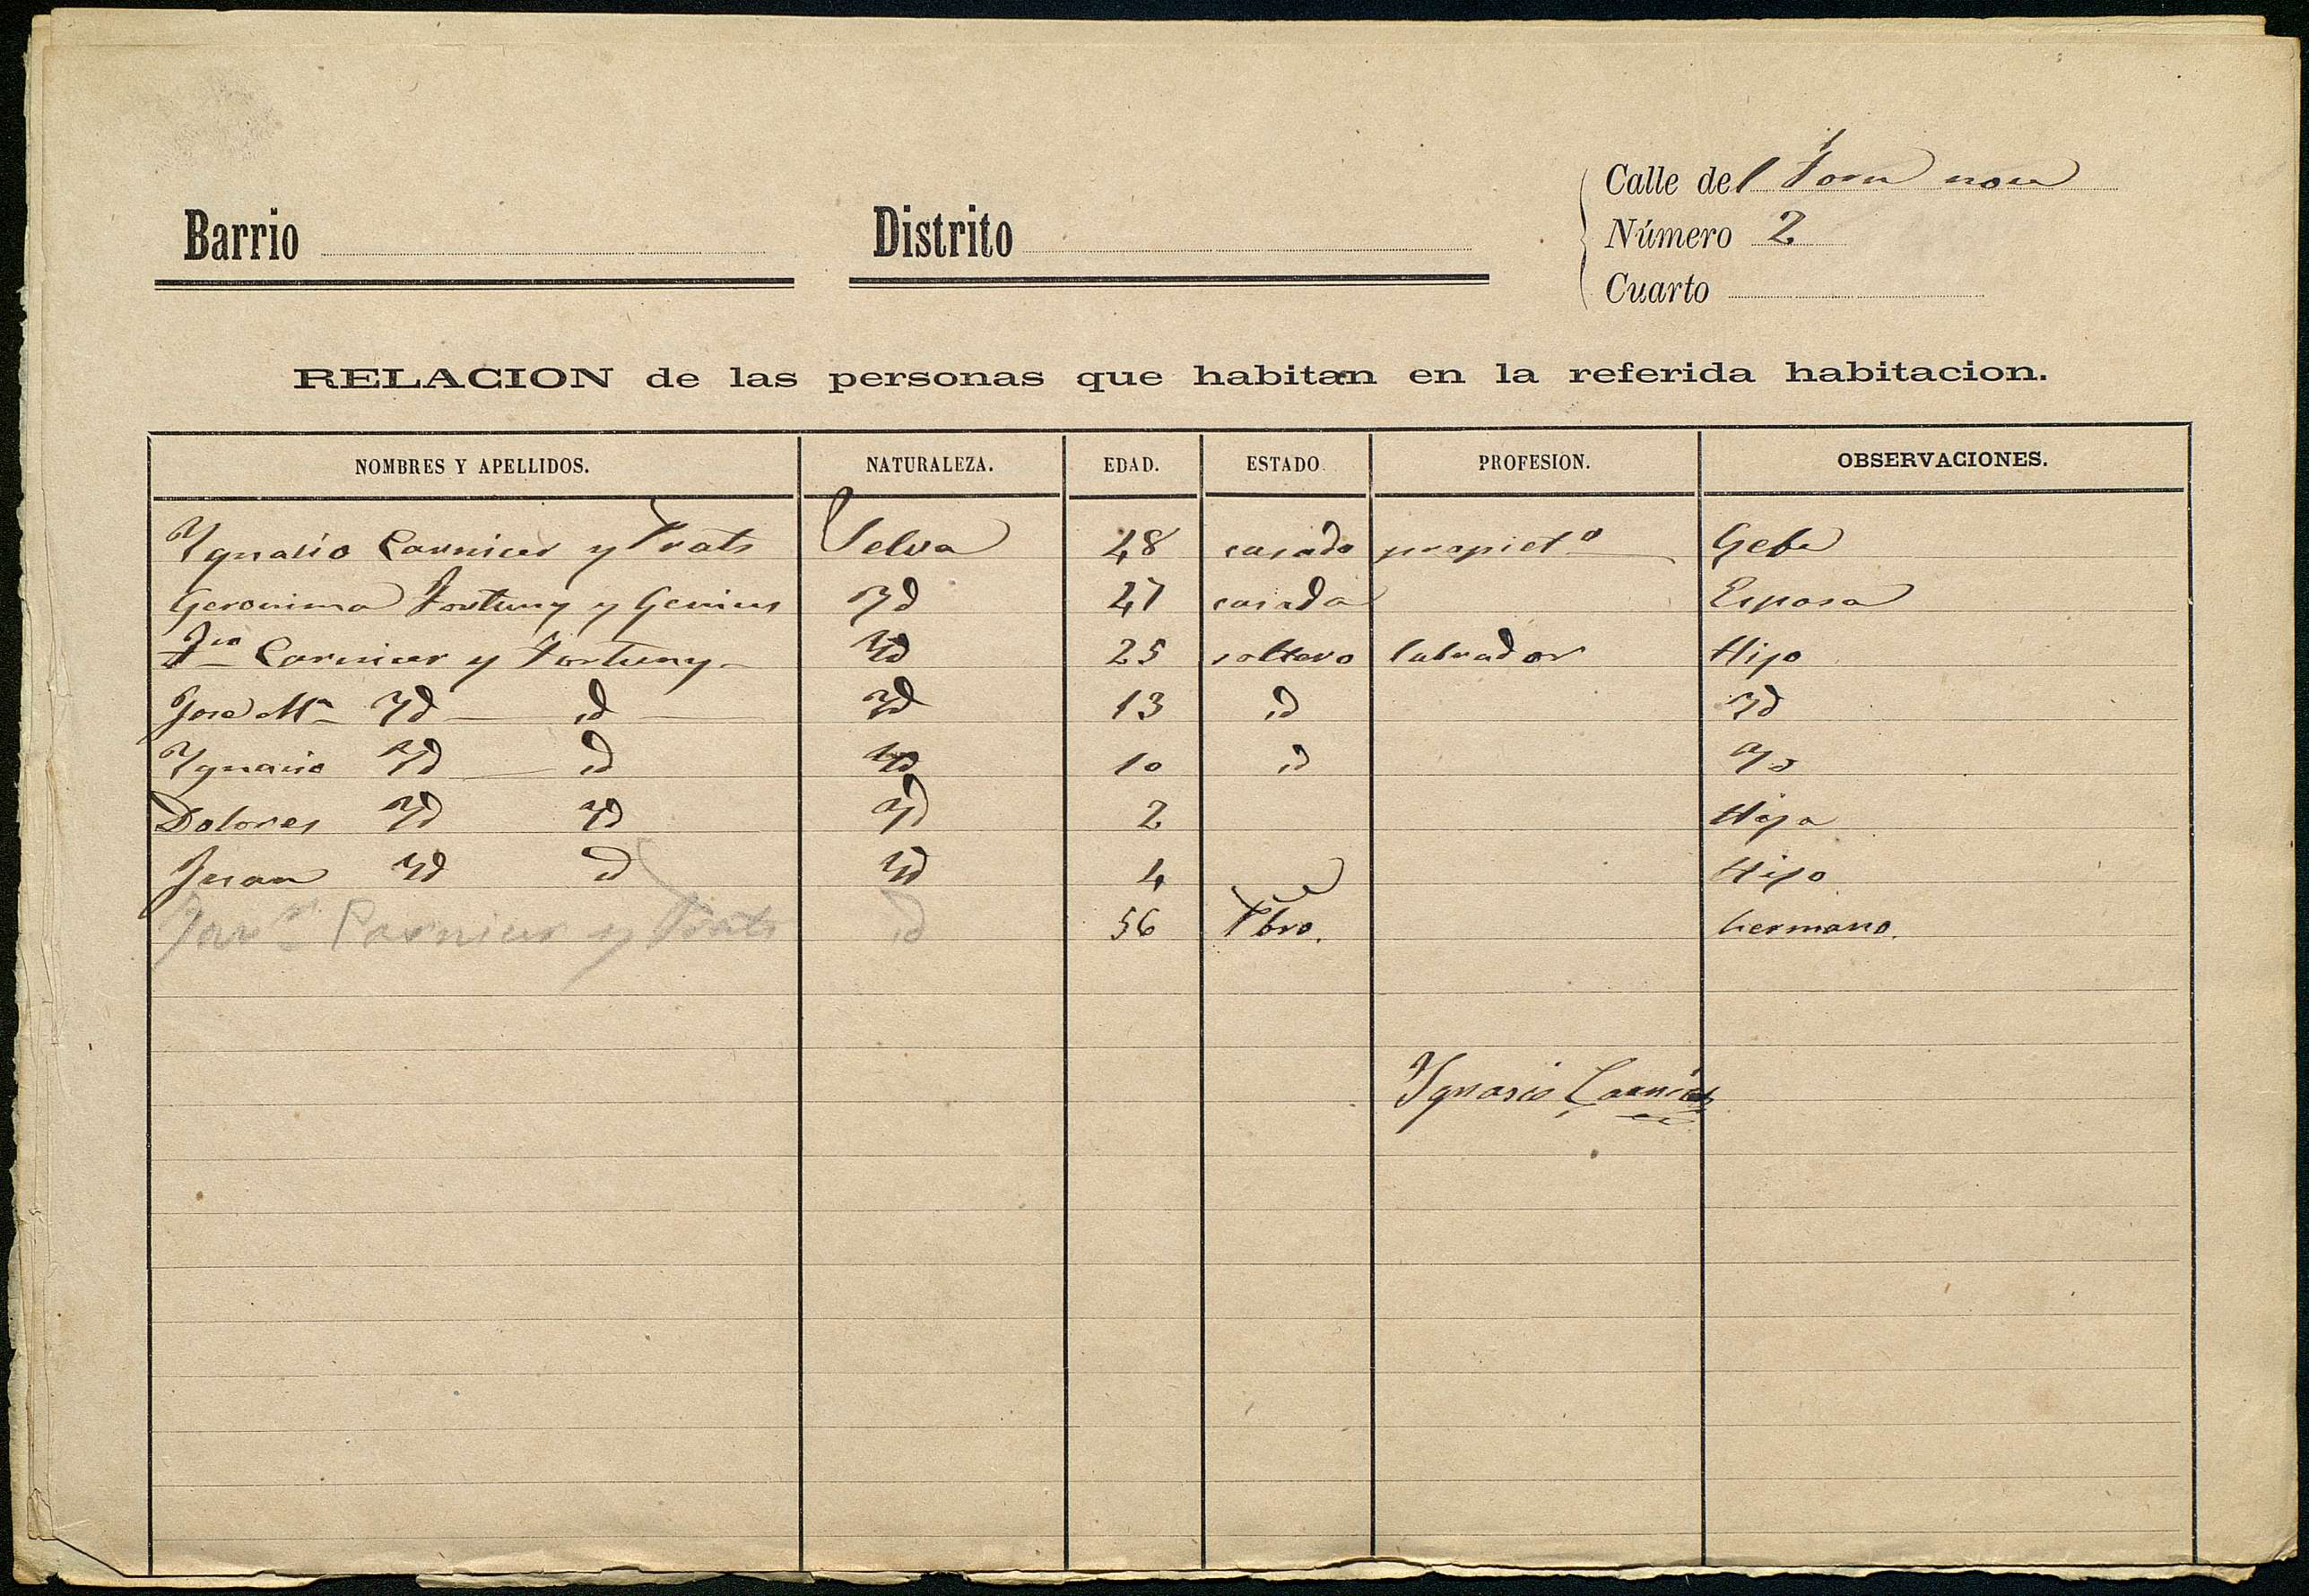 Calle del Forn nou
Barrio Distrito Número 2
Cuarto
RELACION de las personas que habitan en la referida habitacion.
NOMBRES Y APELLIDOS. NATURALEZA. EDAD. ESTADO. PROFESION. OBSERVACIONES.
Ygnacio Carnicer y Prats Selva 48 casado propietº Gefe
Geronima Fortuny y 47 casada Esposa
Fco Carnicer y Fortuny Yd 25 soltero labrador Hijo
José Mª Yd id Yd 13 id Yd
Ygnacio Yd id Yd 10 id Yd
Dolores Yd Yd Yd 2 Hija
Juan Yd id Yd 4 Hijo
Carnicer y Prats id 56 Pbro. hermano.
Ygnacio Carnicer